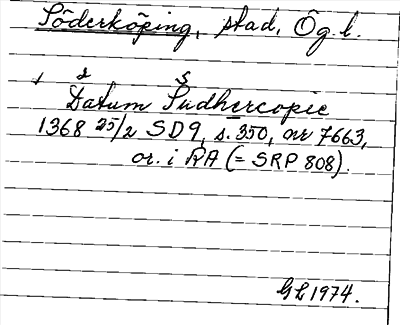 Söderköping, stad, Ög. l.
Datum Sudhercopie
1368 25/2 SD 9, s. 350, nr 7663,
or. i RA (= SRP 808).
GL 1974.